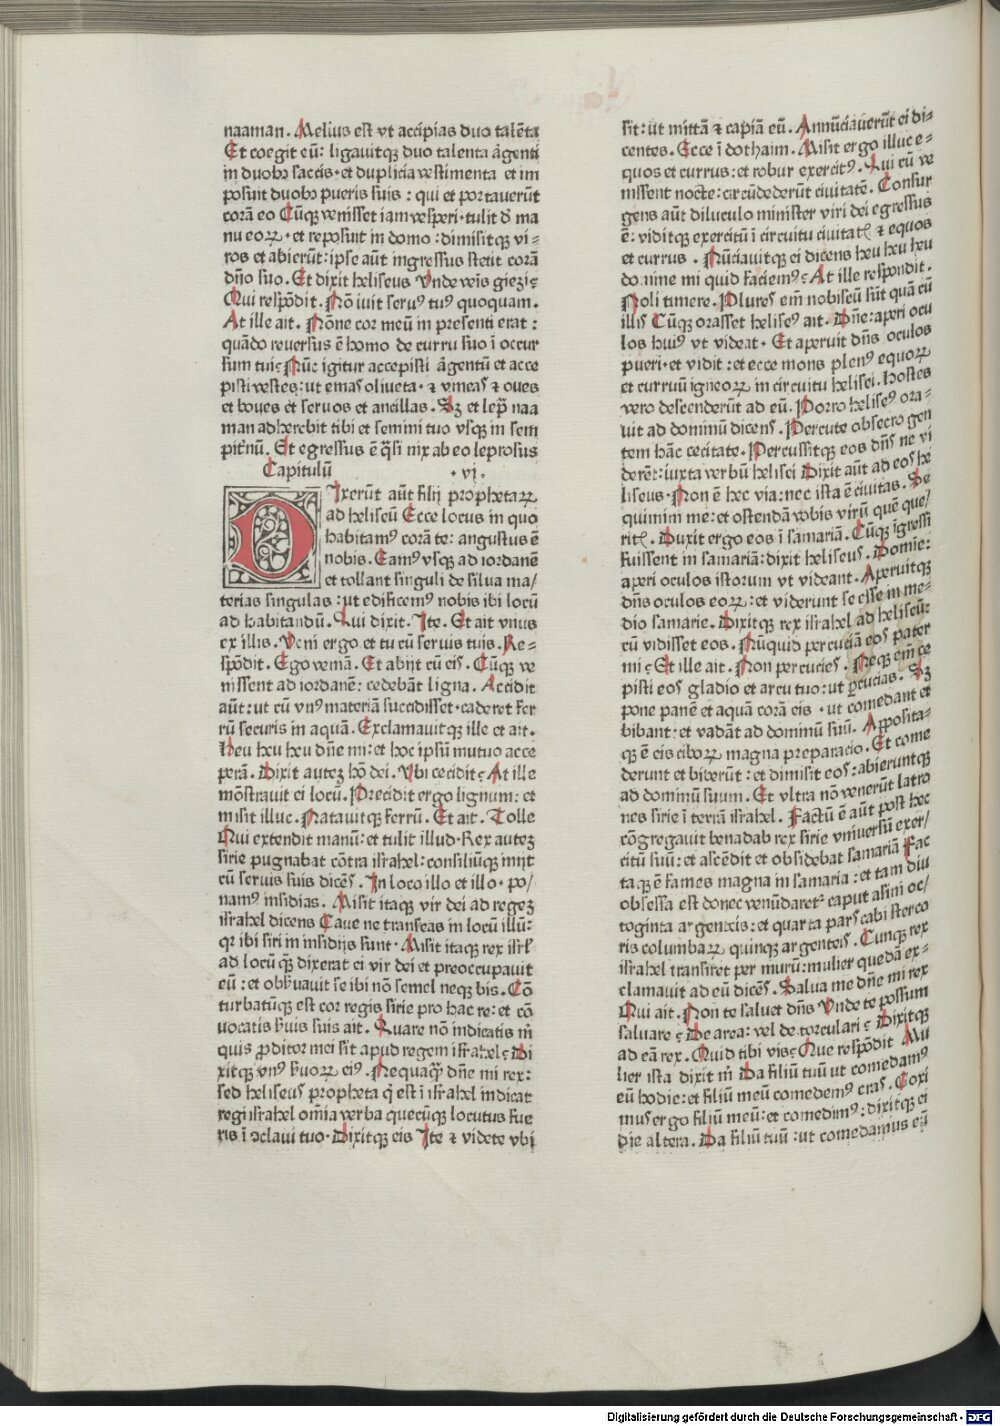 naaman. Melius est vt accipias duo talēta
Et coegit eū: ligauitqꝫ duo talenta argenti
in duobꝫ saccis·et duplicia vestimenta et im
posuit duobꝫ pueris suis : qui et portauerūt
corā eo Cūqꝫ venisset iam vesperi·tulit ď ma
nu eoꝝ·et reposuit in domo:dimisitqꝫ vi⸗
ros et abierūt:ipse aūt ingressus stetit corā
dn̄o suo. Et dixit heliseus Vnde venis giezi?
Qui respōdit. Nō iuit seruꝰ tuꝰ quoquam.
At ille ait. Nōne cor meū in presenti erat:
quādo reuersus ē homo de curru suo ī occur
sum tui? Nūc igitur accepisti argentū et acce
pisti vestes:ut emas oliueta·⁊ vineas ⁊ oues
et boues et seruos et ancillas. Sꝫ et lepra naa
man adherebit tibi et semini tuo vsqꝫ in sem
pitʳnū. Et egressus ē q̄si nix ab eo leprosus
Capitulū ·vi·
DIxerūt aūt filij prophetaꝝ
ad heliseū Ecce locus in quo
habitamꝰ corā te: angustus ē
nobis. Eamꝰ vsqꝫ ad iordanē
et tollant singuli de silua ma/
terias singulas:ut edificemꝰ nobis ibi locū
ad habitandū. Qui dixit. Ite. Et ait vnus
ex illis. Veni ergo et tu cū seruis tuis. Re⸗
spōdit. Ego veniā. Et abijt cū eis. Cūqꝫ ve
nissent ad iordanē: cedebāt ligna. Accidit
aūt:ut cū vnꝰ materiā succidisset·caderet fer
rū securis in aquā. Exclamauitqꝫ ille et ait.
Heu heu heu dn̄e mi:et hoc ipsū mutuo acce
perā. Dixit autez hō dei. Vbi cecidit? At ille
mōstrauit ei locū. Precidit ergo lignum: et
misit illuc. Natauitqꝫ ferrū. Et ait. Tolle
Qui extendit manū:et tulit illud·Rex autez
sirie pugnabat cōtra israhel:consiliūqꝫ inijt
cū seruis suis dicēs. In loco illo et illo·po/
namꝰ insidias. Misit itaqꝫ vir dei ad regez
israhel dicens Caue ne transeas in locū illū:
qꝛ ibi siri in insidijs sunt·Misit itaqꝫ rex isrł
ad locū qꝫ dixerat ei vir dei et preoccupauit
eū:et obẜuauit se ibi nō semel neqꝫ bis. Cō
turbatūqꝫ est cor regis sirie pro hac re:et cō
uocatis ẜuis suis ait. Quare nō indicatis m̄
quis ꝓditor mei sit apud regem israhel? Di
xitqꝫ vnꝰ ẜuoꝝ eiꝰ. Nequaqꝫ dn̄e mi rex:
sed heliseus propheta q̄ est ī israhel indicat
regi israhel om̄ia verba quecūqꝫ locutus fue
ris ī ↄclaui tuo·Dixitqꝫ eis Ite ⁊ videte vbi
sit:ut mittā ⁊ capiā eū. Annūciauerūt ei di⸗
centes. Ecce ī dothaim. Misit ergo illuc e⸗
quos et currus:et robur exercitꝰ. Qui cū ve
nissent nocte:circūdederūt ciuitatē. Consur
gens aūt diluculo minister viri dei egressus
ē:viditqꝫ exercitū ī circuitu ciuitatꝭ ⁊ equos
et currus. Nūciauitqꝫ ei dicens heu heu heu
domine mi quid faciemꝰ? At ille respondit.
Noli timere. Plures em̄ nobiscū sūt quā cū
illis Cūqꝫ orasset heliseꝰ ait. Dn̄e:aperi ocu
los huiꝰ vt videat·Et aperuit dn̄s oculos
pueri·et vidit:et ecce mons plenꝰ equoꝝ
et curruū igneoꝝ in circuitu helisei. Hostes
vero descenderūt ad eū. Porro heliseꝰ ora⸗
uit ad dominū dicens. Percute obsecro gen
tem hāc cecitate. Percussitqꝫ eos dn̄s ne vi
derēt:iuxta verbū helisei Dixit aūt ad eos he
liseus·Non ē hec via:nec ista ē ciuitas. Se
quimini me:et ostendā vobis virū quē que/
ritꝭ. Duxit ergo eos ī samariā. Cūqꝫ īgressi
fuissent in samariā:dixit heliseus. Domīe:
aperi oculos istorum vt videant. Aperuitqꝫ
dn̄s oculos eoꝝ:et viderunt se esse in me⸗
dio samarie. Dixitqꝫ rex israhel ad heliseū:
cū vidisset eos. Nūquid percutiā eos pater
mi? Et ille ait. Non percucies. Neqꝫ em̄ ce
pisti eos gladio et arcu tuo:ut ꝑcucias. Sꝫ
pone panē et aquā corā eis·ut comedant et
bibant:et vadāt ad dominū suū. Apposita⸗
qꝫ ē eis ciboꝝ magna preparacio. Et come
derunt et biberūt:et dimisit eos:abieruntqꝫ
ad dominū suum. Et vltra nō venerūt latro
nes sirie ī terrā israhel. Factū ē aūt post hec
cōgregauit benadab rex sirie vniuersū exer/
citū suū:et ascēdit et obsidebat samariā Fac
taqꝫ ē fames magna in samaria:et tam diu
obsessa est donec venūdaretᷣ caput asini oc/
toginta argenteis:et quarta pars cabi sterco
ris columbaꝝ quinqꝫ argenteis. Cumqꝫ rex
israhel transiret per murū:mulier quedā ex⸗
clamauit ad eū dicēs. Salua me dn̄e mi rex
Qui ait. Non te saluet dn̄s Vnde te possum
saluare? De area:vel de torculari? Dixitqꝫ
ad eā rex. Quid tibi vis? Que respōdit Mu
lier ista dixit m̄ Da filiū tuū ut comedamꝰ
eū hodie:et filiū meū comedemꝰ cras. Coxi
mus ergo filiū meū:et comedimꝰ:dixitqꝫ ei
die altera. Da filiū tuū:ut comedamus eū
Digitalisierung gefördert durch die Deutsche Forschungsgemeinschaft - DFG